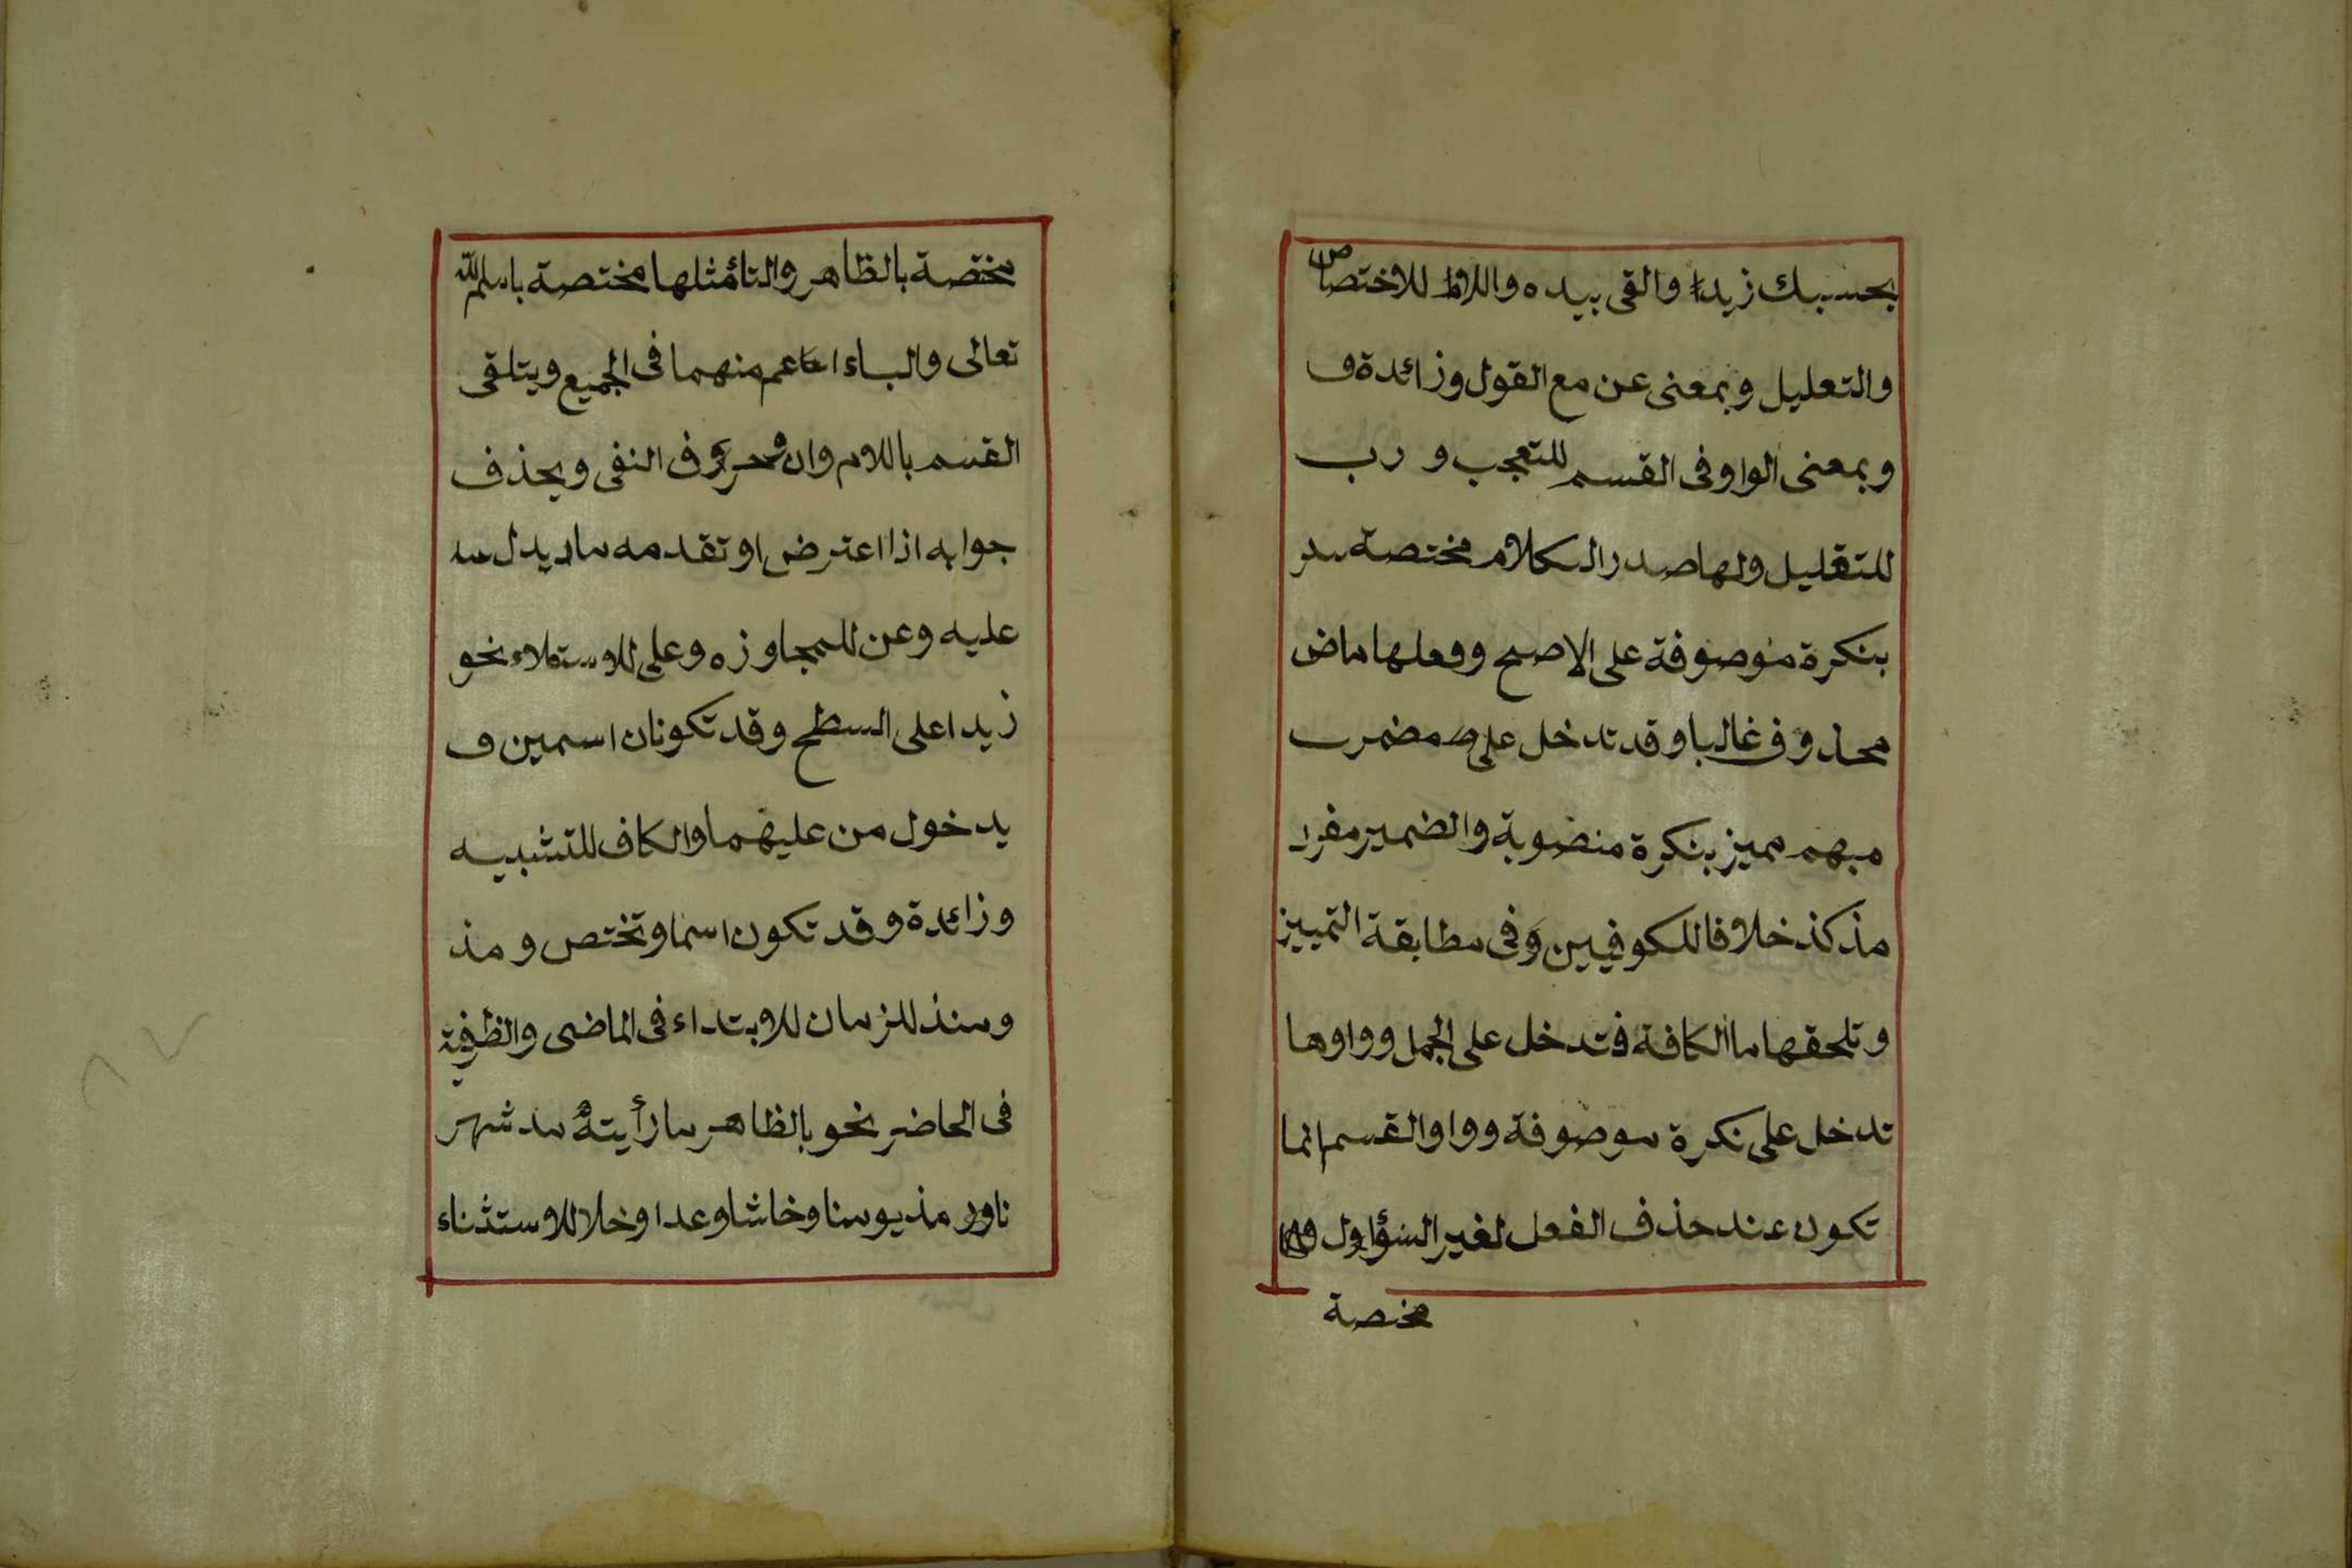 بحسبك زيد والقى بيده واللام للاختصاص
والتعليل وبمعنى عن مع القول وزائدة و
وبمعنى الواو فى القسم للتعجب و رب
للتقليل ولها صدر الكلام مختصة
بنكرة موصوفة على الاصح وفعلها ماض
محذوف غالبا وقد تدخل على مضمر
مبهم مميز بنكرة منضوبة والضمير مفرد
مذكذ خلافا للكوفيين وفى مطابقة التمييز
وتلحقها ما الكافة فتدخل على الجمل وواوها
تدخل على نكرة موصوفة وواو القسم انما
تكون عند حذف الفعل لغير السؤاول
مختصة
مختصة بالظاهر والتا مثلها مختصة باسم الله
تعالى والباء اعم منهما فى الجميع ويتلقى
القسم باللام وان وحروف النفى ويحذف
جوابه اذا اعترض او تقدمه ما يدل
عليه وعن للمجاوزه وعلى للاستملاء نحو
زيدا على السطح وقد تكونان اسمين و
يدخول من عليهما والكاف للتشبيه
وزائدة وقد تكون اسما وتختص و مذ
ومنذ للزمان للابتداء فى الماضى والظرفية
فى الحاضر نحو بالظاهر ما رأيته مد شهر
ناور مذ يومنا وخاشا وعدا وخلا للاستثناء